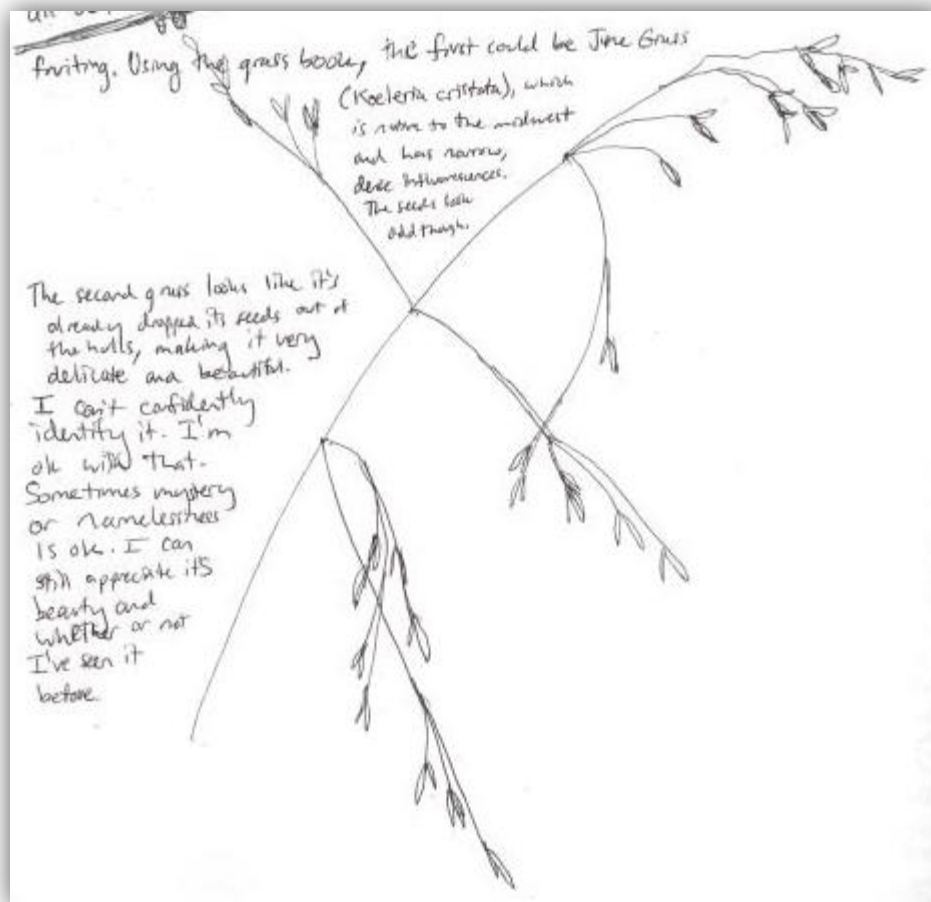 fruiting. Using the grass book, the first could be June Grass
(Koeleria cristata), which
is native to the midwest
and has narrow,
dense influorescences.
The seeds look
odd though.
The second grass looks like it's
already dropped its seeds out of
the hulls, making it very
delicate and beautiful.
I can't confidently
identify it. I'm
ok with that.
Sometimes mystery
or namelessness
is ok. I can
still appreciate it's
beauty and
whether or not
I've seen it
before.